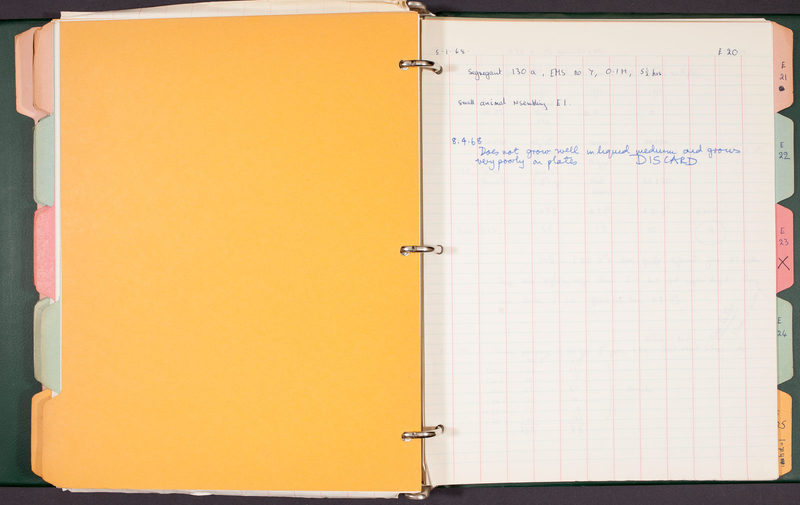 5.1.68. E20
Segregant 130a, EMS no 7, 0.1M, 5½ hrs
Small animal resembling E1.
8.4.68
Does not grow well in liquid medium and grows
very poorly on plates DISCARD
E
21
E
22
E
23
X
E
24